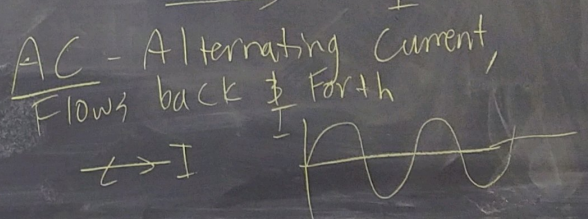 AC - Alternating Current,
Flows back & Forth
I
I